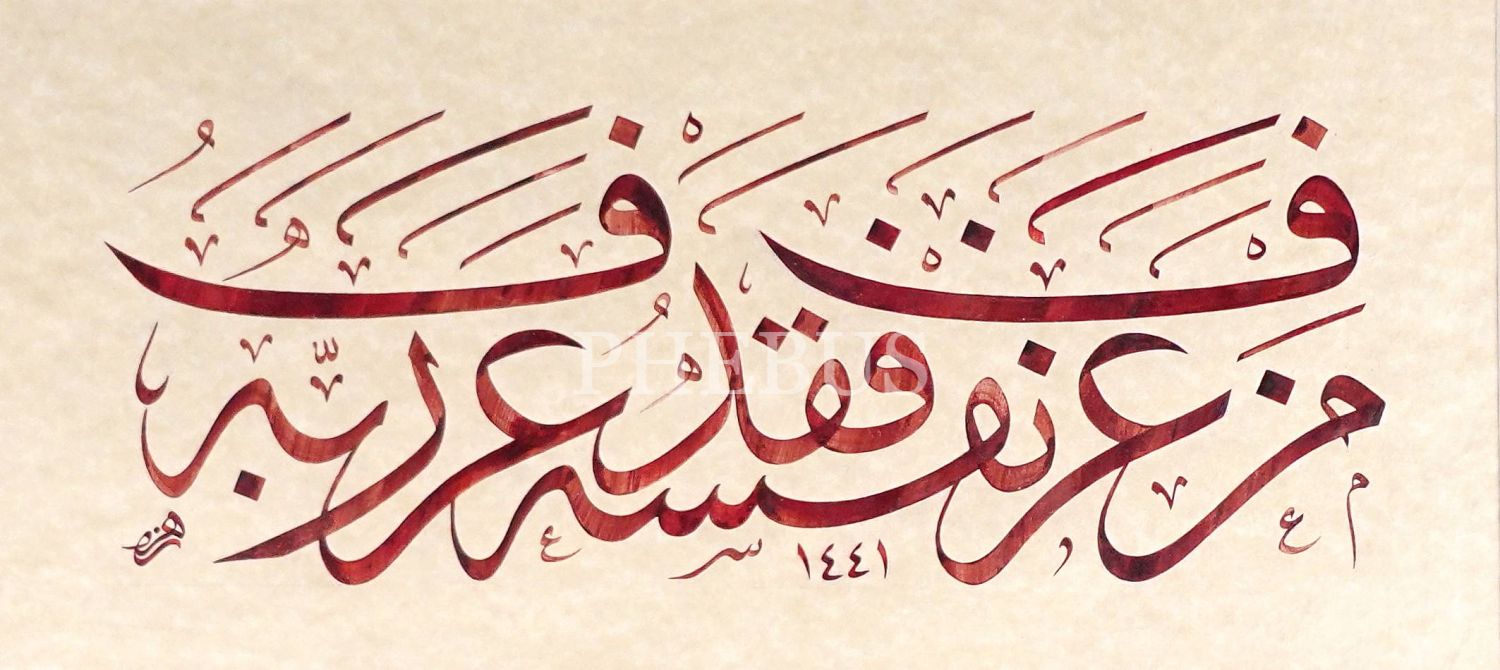 من عرف نفسه فقد عرف ربه
PHEBUS
١٤٤١